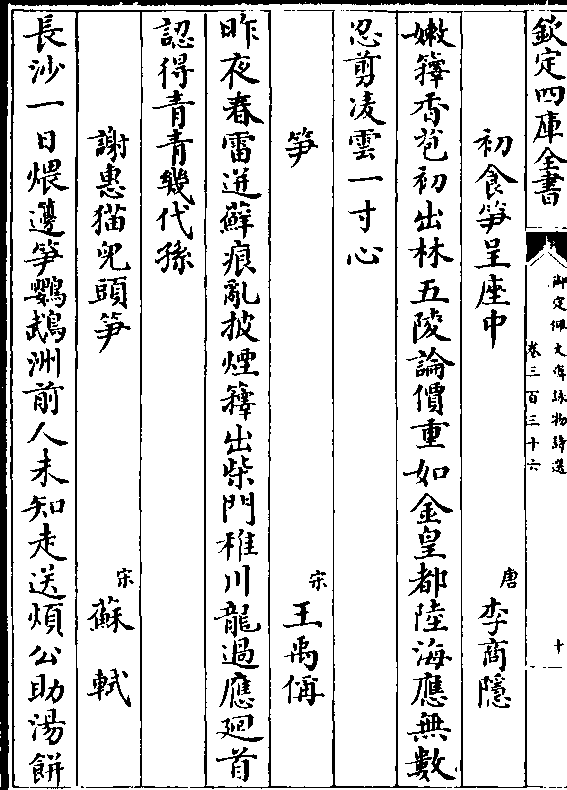 欽定四庫全書
御定佩文齋詠物詩選
卷三百三十六
十
初食筍呈座中
唐 李商隱
嫩籜香苞初出林五陵論價重如金皇都陸海應無數
忍剪凌雲一寸心
筍
宋 王禹偁
昨夜春雷迸蘚痕亂披煙籜出柴門稚川龍過應廻首
認得青青幾代孫
謝惠猫兒頭筍
宋 蘇軾
長沙一日煨籩筍鸚鵡洲前人未知走送煩公助湯餅